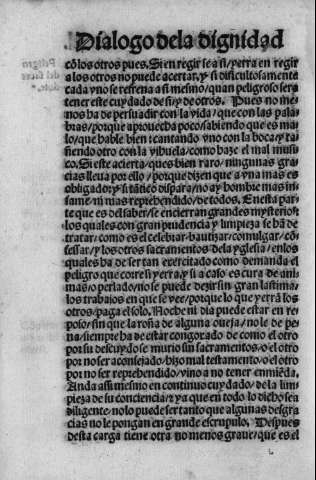 Dialogo dela dignidad
cõ los otros pues. Si en regir se a si/ yerra en regir
a los otros no puede acertar. y si dificultosamente
cada vno se refrena a si mesmo/ quan peligroso sera
tener este cuydado de si/ y de otros. Pues no me
nos ha de persuadir con la vida/ que con las pala
bras/ porque aprouecha poco/ sabiendo que es ma
lo/ que hable bien: cantando vno con la boca/ y ta
ñendo otro con la vihuela/ como haze el mal musi
co. Si este acierta/ ques bien raro/ ningunas gra
cias lleua por ello/ porque dizen que a vna mas es
obligado: y si tãtico dispara/ no ay hombre mas in
fame/ ni mas reprehendido/ de todos. En esta par
te que es del saber/ se encierran grandes mysterios:
los quales con gran prudencia y limpieza se hã de
tratar/ como es el celebrar/ bautizar/ comulgar/ cõ
fessar/ y los otros sacramentos de la yglesia/ en los
quales ha de ser tan exercitado como demanda el
peligro que corre si yerra/ y si a caso es cura de ani
mas/ o perlado/ no se puede dezir sin gran lastima/
los trabajos en que se vee/ porque lo que yerrã los
otros/ paga el solo. Noche ni dia puede estar en re
poso/ sin que la roña de alguna oueja/ no le de pe
na/ siempre ha de estar congoxado/ de como el otro
por su descuydo se murio sin sacramentos/ o el otro
por no ser aconsejado/ hizo mal testamento/ o el otro
por no ser reprehendido/ vino a no tener enmiẽda.
Anda assi mismo en continuo cuydado/ de la lim
pieza de su conciencia: y ya que en todo lo dicho sea
diligente/ no lo puede ser tanto que algunas desgra
cias no le pongan en grande escrupulo. Despues
desta carga tiene otra no menos graue/ que es el